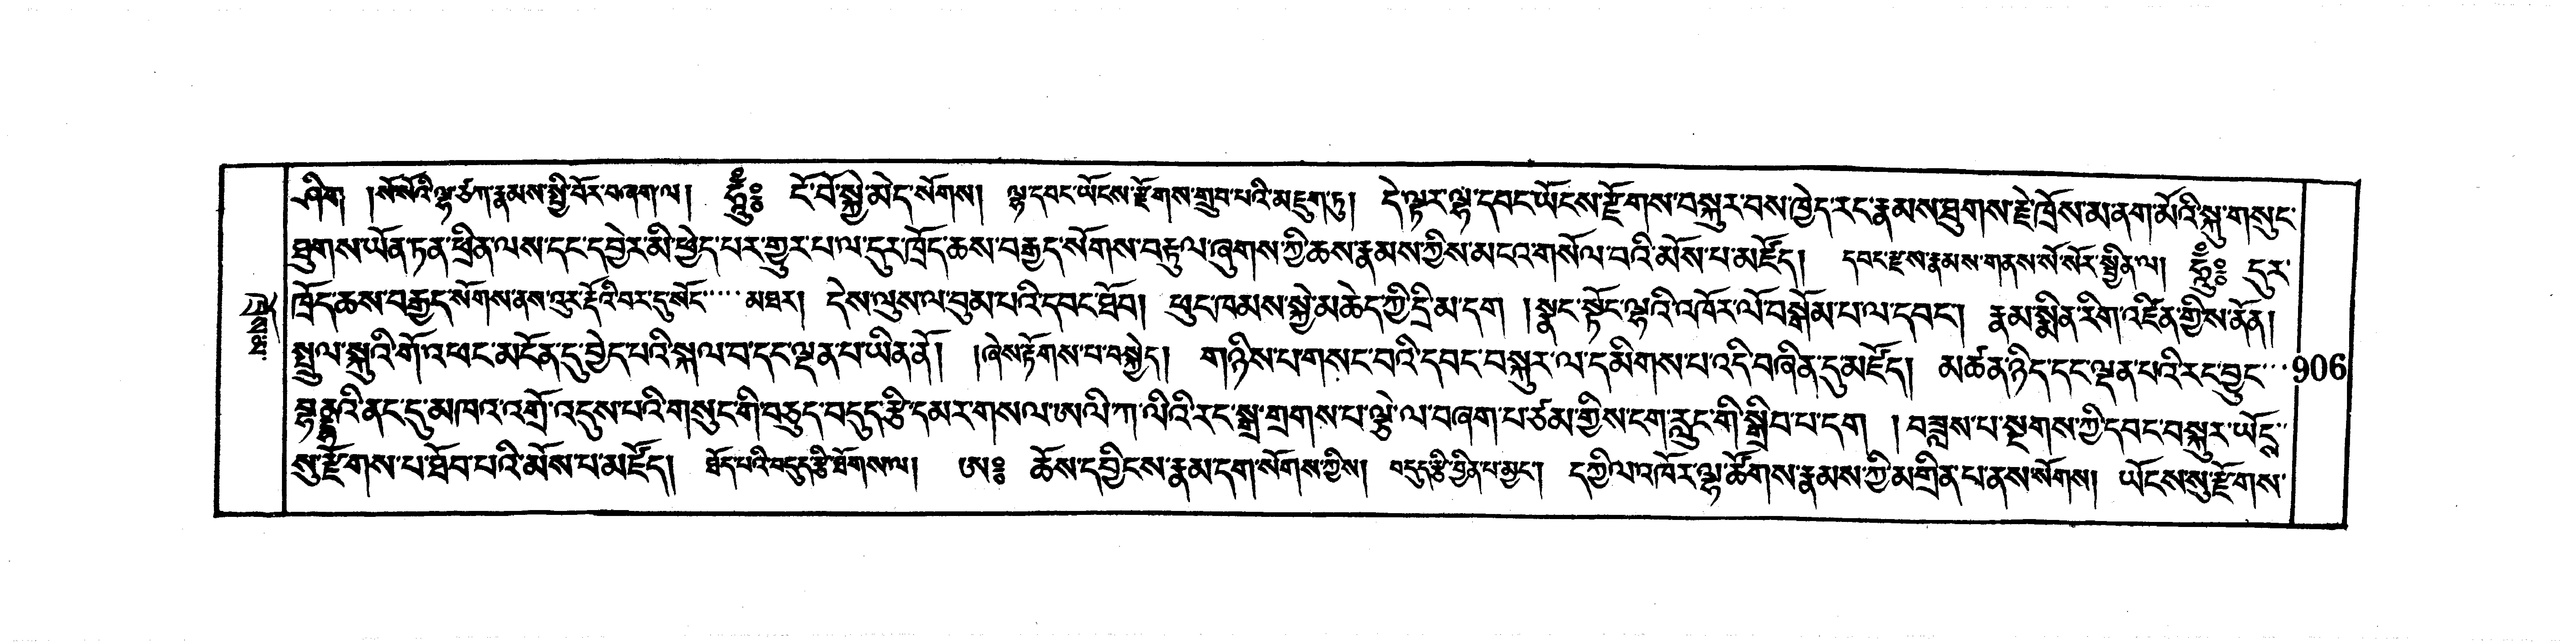 ཞིག །སོ་སོའི་ལྷ་ཙཀ་རྣམས་སྤྱི་བོར་བཞག་ལ། ཧཱུྃ༔ ངོ་བོ་སྐྱེ་མེད་སོགས། ལྷ་དབང་ཡོངས་རྫོགས་གྲུབ་པའི་མཇུག་ཏུ། དེ་ལྟར་ལྷ་དབང་ཡོངས་རྫོགས་བསྐུར་བས་ཁྱེད་རང་རྣམས་ཐུགས་རྗེ་ཁྲོས་མ་ནག་མོའི་སྐུ་གསུང་
ཐུགས་ཡོན་ཏན་ཕྲིན་ལས་དང་དབྱེར་མི་ཕྱེད་པར་གྱུར་པ་ལ་དུར་ཁྲོད་ཆས་བརྒྱད་སོགས་བརྟུལ་ཞུགས་ཀྱི་ཆས་རྣམས་ཀྱིས་མངའ་གསོལ་བའི་མོས་པ་མཛོད། དབང་རྫས་རྣམས་གནས་སོ་སོར་སྦྱིན་ལ། ཧཱུྃ༔ དུར་
ཁྲོད་ཆས་བརྒྱད་སོགས་ནས་འུར་རྡོའི་བར་དུ་སོང་···· མཐར། དེས་ལུས་ལ་བུམ་པའི་དབང་ཐོབ། ཕུང་ཁམས་སྐྱེ་མཆེད་ཀྱི་དྲི་མ་དག །སྣང་སྟོང་ལྷའི་འཁོར་ལོ་བསྒོམ་པ་ལ་དབང་། རྣམ་སྨིན་རིག་འཛིན་གྱི་ས་ནོན།
སྤྲུལ་སྐུའི་གོ་འཕང་མངོན་དུ་བྱེད་པའི་སྐལ་བ་དང་ལྡན་པ་ཡིན་ནོ། །ཞེས་རྟོགས་པ་བསྐྱེད། གཉིས་པ་གསང་བའི་དབང་བསྐུར་ལ་དམིགས་པ་འདི་བཞིན་དུ་མཛོད། མཚན་ཉིད་དང་ལྡན་པའི་རང་བྱུང་··· 906
བྷནྡྷའི་ནང་དུ་མཁའ་འགྲོ་འདུས་པའི་གསུང་གི་བཅུད་བདུད་རྩི་དམར་གསལ་ཨ་ལི་ཀ་ལིའི་རང་སྒྲ་གྲགས་པ་ལྕེ་ལ་བཞག་པ་ཙམ་གྱིས་ངག་རླུང་གི་སྒྲིབ་པ་དག །བཟླས་པ་སྔགས་ཀྱི་དབང་བསྐུར་ཡོངྶ་
སུ་རྫོགས་པ་ཐོབ་པའི་མོས་པ་མཛོད། ཐོད་པའི་བདུད་རྩི་ཐོགས་ལ། ཨ༔ ཆོས་དབྱིངས་རྣམ་དག་སོགས་ཀྱིས། བདུད་རྩི་བྱིན་པ་མྱང་། དཀྱིལ་འཁོར་ལྷ་ཚོགས་རྣམས་ཀྱི་མགྲིན་པ་ནས་སོགས། ཡོངས་སུ་རྫོགས་